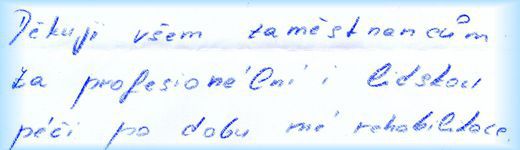 Děkuji všem zaměstnancům
za profesionální i lidskou
péči po dobu mé rehabilitace.